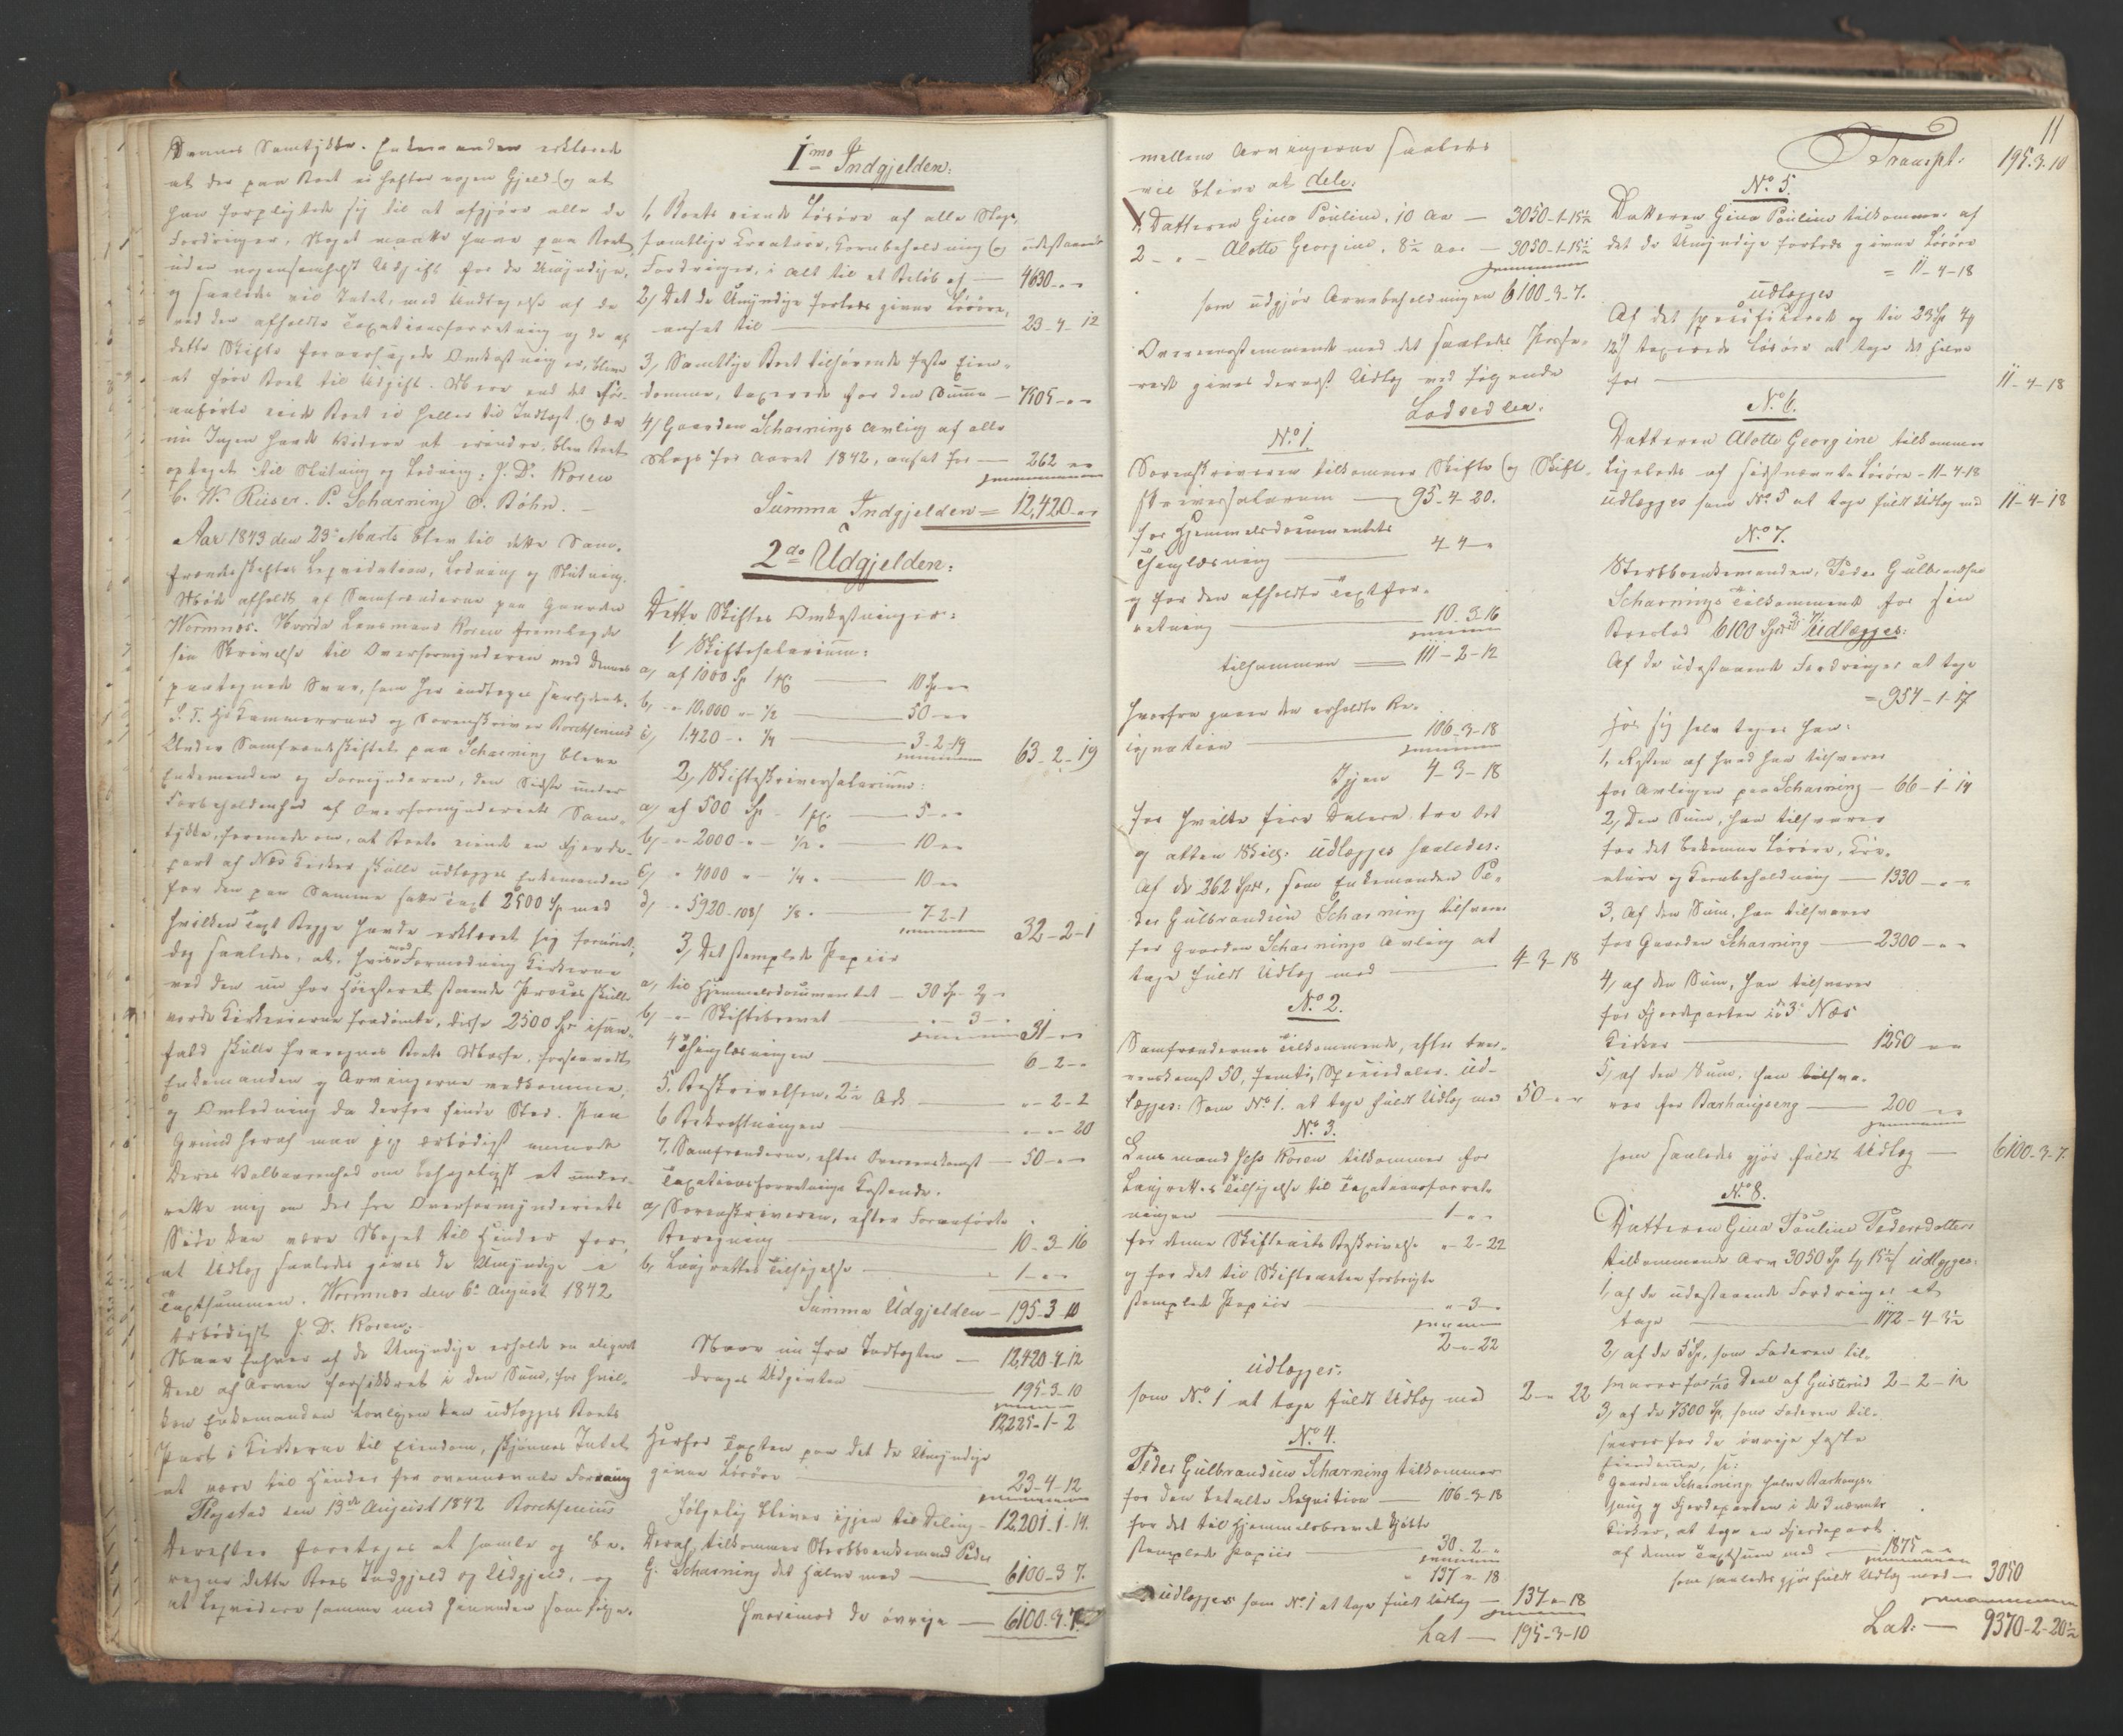 Dennes Samtykke. Enkemanden erklærede
at der paa Boet ei hefter nogen Gjeld og at
han forpligtede sig til at afgjøre alle de
Fordringer, Noget maatte have paa Boet
uden nogensomhelst Udgift for de Umyndige,
og saaledes vil Intet, med Undtagelse af de
ved den afholdte Taxationsforretning og de af
dette Skifte foraarsagede Omkostninger, blive
at føre Boet til Udgift. Mere end det før-
anførte eiede Boet ei heller til Indtægt. Og da
nu Ingen havde Videre at erindre, blev Boet
optaget til Slutning og Lodning. J. D. Koren
C. W. Rieser. P. Scharning O. Bøhn. –
Aar 1843 den 23de Marts blev til dette Sam-
frændeskiftes Liqvidation, Lodning og Slutning
Møde afholdt af Samfrænderne paa Gaarden
Wormnæs. Hvorda Lensmand Koren fremlagde
sin Skrivelse til Overformynderen med Dennes
paategnede Svar, som her indtages saalydende.
S. T. Hr Kammerraad og Sorenskriver Borchsenius
Under Samfrændeskiftet paa Scharning bleve
Enkemanden og Formynderen, den Sidste under
Forbeholdenhed af Overformynderiets Sam-
tykke, forenede om, at Boets eiende en Fjerde-
part af Næs Kirker skulle udlægges Enkemanden
for den paa Samme satte Taxt 2500 Sp med
hvilken Taxt Begge havde erklæret sig fornøiet,
dog saaledes, at, hvis mod Formodning Kirkerne
ved den nu for Høiesteret staaende Proces skulle
vorde Kirkeeierne fradømte, disse 2500 Spd isaa-
fald skulle fragaaes Boets Masse, forsaavidt
Enkemanden og Arvingerne vedkomme,
og Omlodning da derfor finde Sted. Paa
Grund heraf maa jeg ærbødigst anmode
Deres Velbaarenhed om behageligst at under-
rette mig om der fra Overformynderiets
Side kan være Noget til Hinder for,
at Udlæg saaledes gives de Umyndige i
Taxtsummen. Wormnæs den 6te August 1842
Ærbødigst J. D. Koren.
Naar Enhver af de Umyndige erholde en aliqvot
Deel af Arven forsikkret i den Sum, for hvil-
ken Enkemanden lovligen kan udlægges Boets
Part i Kirkerne til Eiendom, skjønnes Intet
at være til Hinder fra ovennævnte Forening
Flagstad den 13de August 1842 Borchsenius
Derefter foretoges at samle og be-
regne dette Boes Indgjeld og Udgjeld, og
at liqvidere samme med hinanden som følger.
1mo Indgjelden:
1, Boets eiende Løsøre af alle Slags,
samtlige Creature, Kornbeholdning og udestaaende
Fordringer, i Alt til et Beløb af — 4630 - „ -
2, Det de Umyndige forlods givne Løsøre,
anset til — 23 - 4 - 12
3, Samtlige Boet tilhørende faste Eien-
domme, taxerede for den Summa — 7505 - „ -
4, Gaarden Scharnings Avling af alle
Slags for Aaret 1842, anset for — 262 „ „
Summa Indgjelden = 12,420 „ „
2do Udgjelden:
Dette Skiftes Omkostninger:
1, Skiftesalarium:
a, af 1000 Sp 1 pC — 10 Sp „ „
b, - „ 10,000 „ - ½ — 50 - „ „
c, 1420 - „ ¼ — 3 - 2 - 19 63 - 2 - 19
2, Skifteskriversalarium:
a, af 500 Sp - 1 pC. — 5 - „ „
b, - „ 2000 - „ - ½ „ — 10 „ „
c, „ 4000 „ - ¼ „ — 10 „ „
d, „ 5920 - 108 ⅛ „ — 7 - 2 - 1 32 - 2 - 1
3, Det stemplede Papiir
a, til Hjemmelsdocumentet — 30 Sp - 2 -
b, - „ Skiftebrevet — „ - 3 - 31 - „ „
4 Thinglæsningen — 6 - 2 - „
5. Beskrivelsen, 2½ Ark — „ - 2 - 2
6 Bekræftningen — „ - „ - 20
7, Samfrænderne, efter Overeenskomst — 50 - „ -
Taxationsforretnings Kostende.
a, Sorenskriveren, efter Foranførte
Beregning — 10 - 3 - 16
b, Laugrettes Tilsigelse — „ 1 - „ -
Summa Udgjelden — 195 - 3 10
Naar nu fra Indtægten — 12,420 - 4 - 12
drages Udgiften — 195 - 3 - 10
12225 - 1 - 2
Herfor Taxten paa det de Umyndige
givne Løsøre — 23 - 4 - 12
Følgelig bliver igjen til Deling — 12,201 - 1 - 14.
Deraf tilkommer Sterbboenkemand Peder
G. Scharning det Halve med — 6100 - 3 7.
Hvorimod de øvrige — 6100 - 3 - 7
11
mellem Arvingerne saaledes
vil blive at dele.
1. Datteren Gina Pouline, 10 Aar — 3050 - 1 - 15½
2 - „ - Alotte Georgine, 8½ Aar — 3050 - 1 - 15½
som udgjør Arvebeholdningen 6100 - 3 - 7.
Overeensstemmende med det saaledes Passe-
rede gives dernæst Udlæg ved følgende
Lodsedler.
No 1
Sorenskriveren tilkommer Skifte og Skifte-
skriversalarium — 95 - 4 - 20.
for Hjemmelsdocumentets
Thinglæsning — 4 4 - „
og for den afholdte Taxtfor-
retning — 10 - 3 - 16
tilsammen — 111 - 2 - 12
hvorfra gaaer den erholdte Re-
ignation — 106 - 3 - 18
Igjen 4 - 3 - 18
for hvilke fire Dalere tre Ort
og atten Skill. udlægges saaledes:
Af de 262 Spd, som Enkemanden Pe-
der Gulbrandsen Scharning tilsvarer
for Gaarden Scharnings Avling at
tage fuldt Udlæg med — 4 - 3 - 18
No 2.
Samfrændernes Tilkommende, efter Over-
eenskomst 50, femti, Speciedaler. Ud-
lægges: Som No 1. at tage fuldt Udlæg med 50 - „ „
No 3.
Lensmand Jess Koren tilkommer for
Laugrettes Tilsigelse til Taxationsforret-
ningen — 1 - „ -
for denne Skifteacts Beskrivelse „ - 2 - 22
og for det til Skifteacten forbrugte
stemplede Papiir — „ - 3 - „
2 - „ - 22
udlægges.
som No 1 at tage fuldt Udlæg med 2 - „ 22
No 4.
Peder Gulbrandsen Scharning tilkommer
for den betalte Reqvition — 106 - 3 - 18
for det til Hjemmelsbrevet kjøbte
stemplede Papiir — 30 - 2 - „
137 „ - 18
udlægges som No 1 at tage fuldt Udlæg — 137 „ - 18
Lat — 195 - 3 - 10
Transpt: 195 . 3 . 10
No 5.
Datteren Gina Pouline tilkommer af
det de Umyndige forlods givne Løsøre
= 11 - 4 - 18
udlægges
Af det specificerede og til 23 Sp 4
12 taxerede Løsøre at tage det halve
for — 11 - 4 - 18
No 6.
Datteren Alotte Georgine tilkommer
ligeledes af sidstnævnte Løsøre - 11 - 4 - 18
udlægges som No 5 at tage fuldt Udlæg med 11 - 4 - 18
No 7.
Sterbboenkemanden, Peder Gulbrandsen
Scharnings Tilkommende for sin
Boeslod 6100 Spd 3 7 Udlægges:
Af de udestaaende Fordringer at tage
= 954 - 1 - 17
Hos sig selv tager han:
1, Resten af hvad han tilsvarer
for Avlingen paa Scharning — 66 - 1 - 14
2, Den Sum, han tilsvarer
for det bekomne Løsøre, Cre-
ature og Kornbeholdning — 1330 - „ -
3, Af den Sum, han tilsvarer
for Gaarden Scharning — 2300 - „ -
4, af den Sum, han tilsvarer
for Fjerdeparten i de 3 Næs
Kirker — 1250 „ „
5, af den Sum, han tilsva-
rer for Barhougseng — 200 „ „
som saaledes gjør fuldt Udlæg — 6100 - 3 - 7
No 8.
Datteren Gina Pouline Pedersdatters
tilkommende Arv 3050 Sp 1 15½ udlægges:
1, af de udestaaende Fordringer at
tage — 1172 - 4 - 3½
2, af de 5 Sp, som Faderen til-
svarer for Deel af Gusterud 2 - 2 - 12
3, af de 7500 Sp, som Faderen til-
svarer for de øvrige faste
Eiendomme,
Gaarden Scharning, halve Barhougs-
eng og Fjerdeparten i de 3 nævnte
Kirker, at tage en Fjerdepart
af denne Taxtsum med — 1875 „ „
som saaledes gjør fuldt Udlæg med — 3050
Lat: — 9370 - 2 - 20½